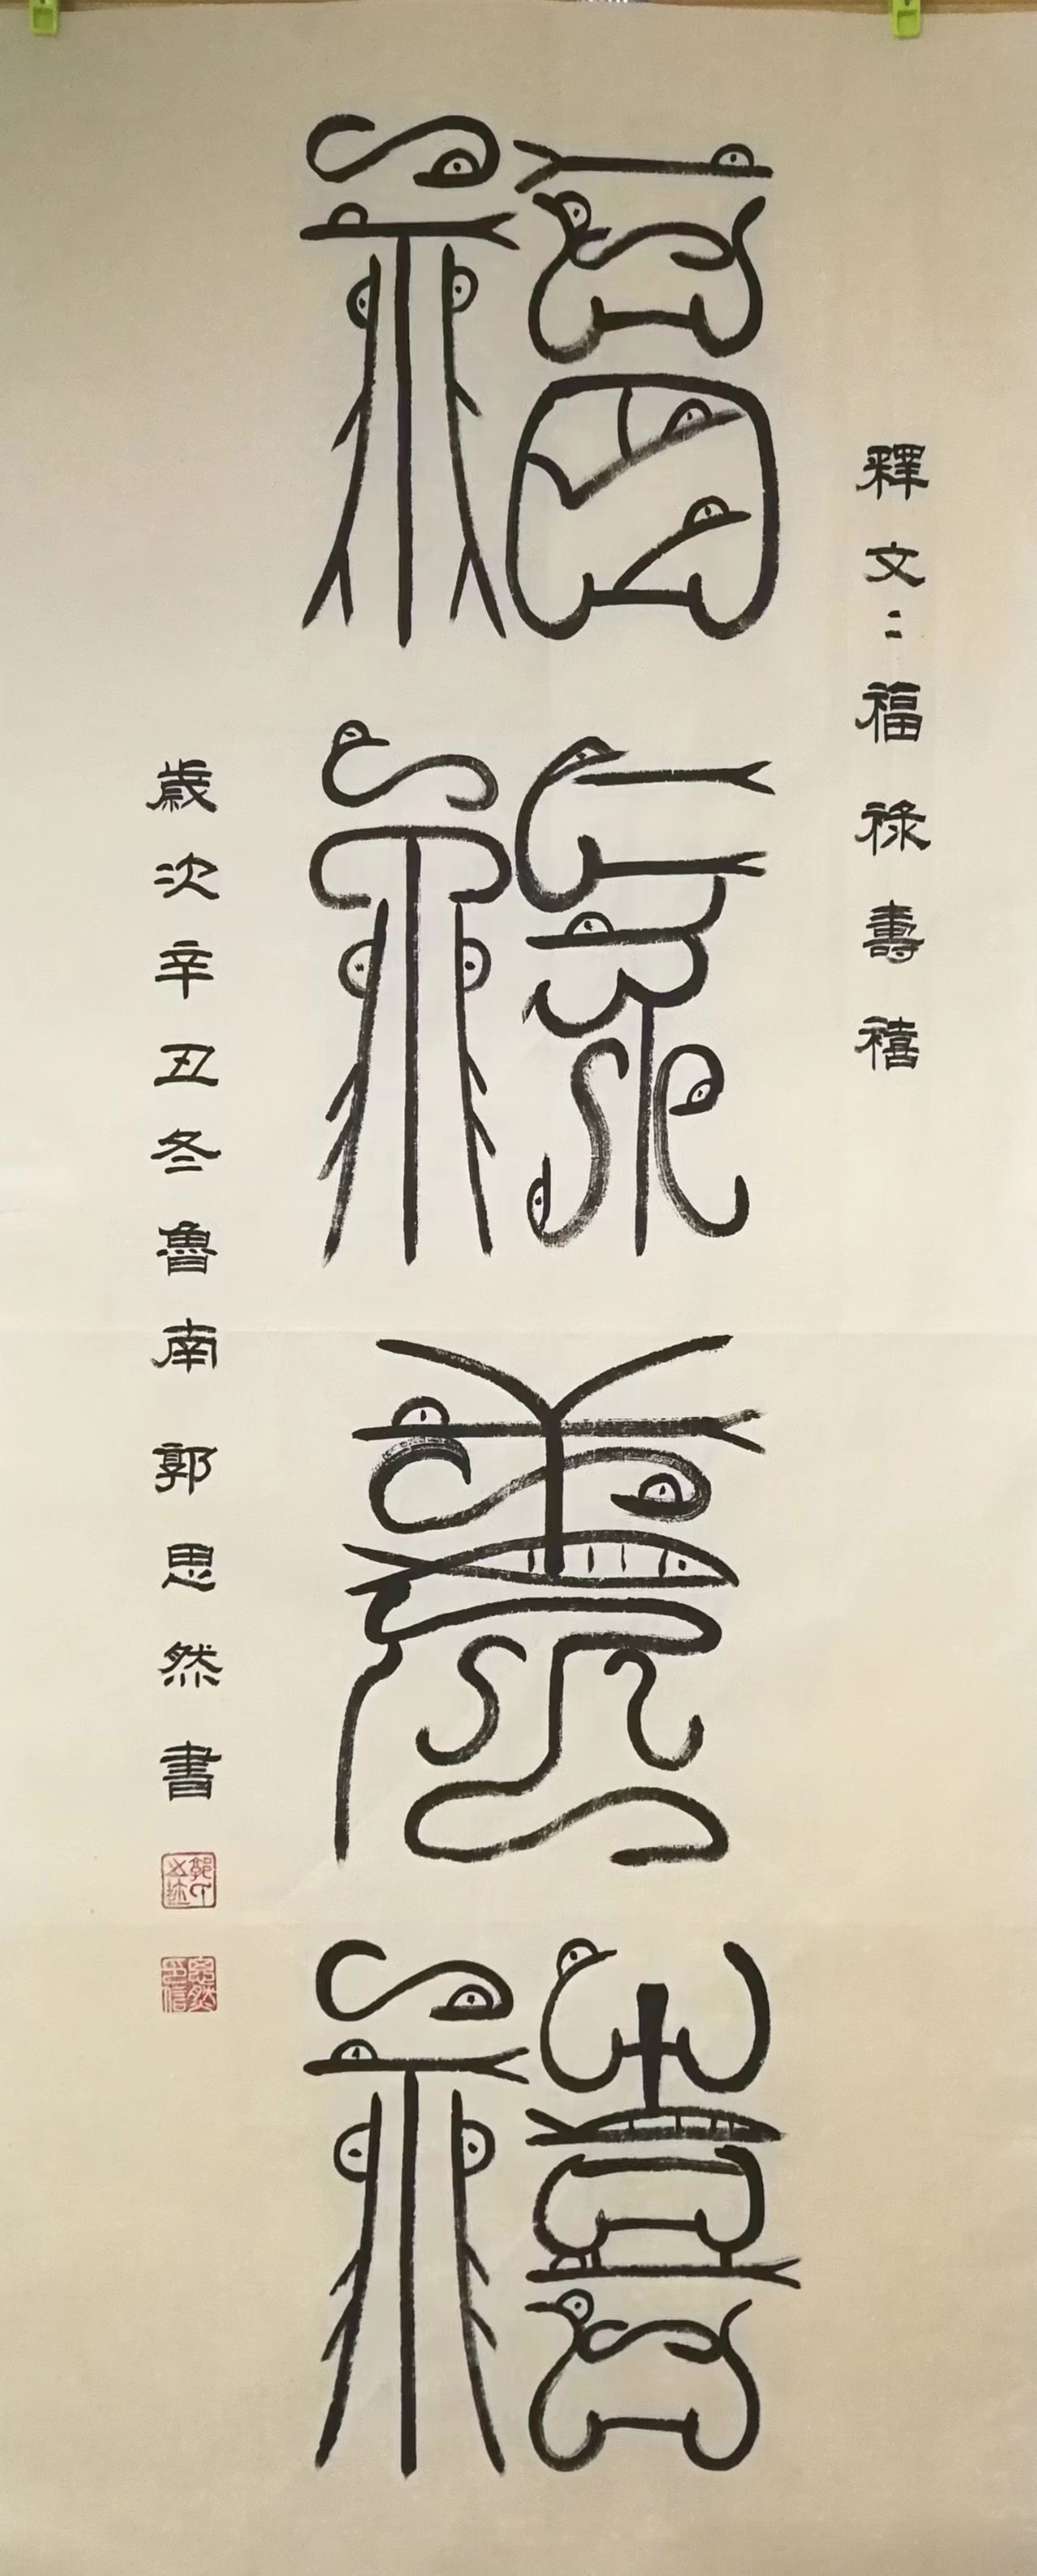 釋文：福祿壽禧
福祿壽禧
歲次辛丑冬魯南郭思然書